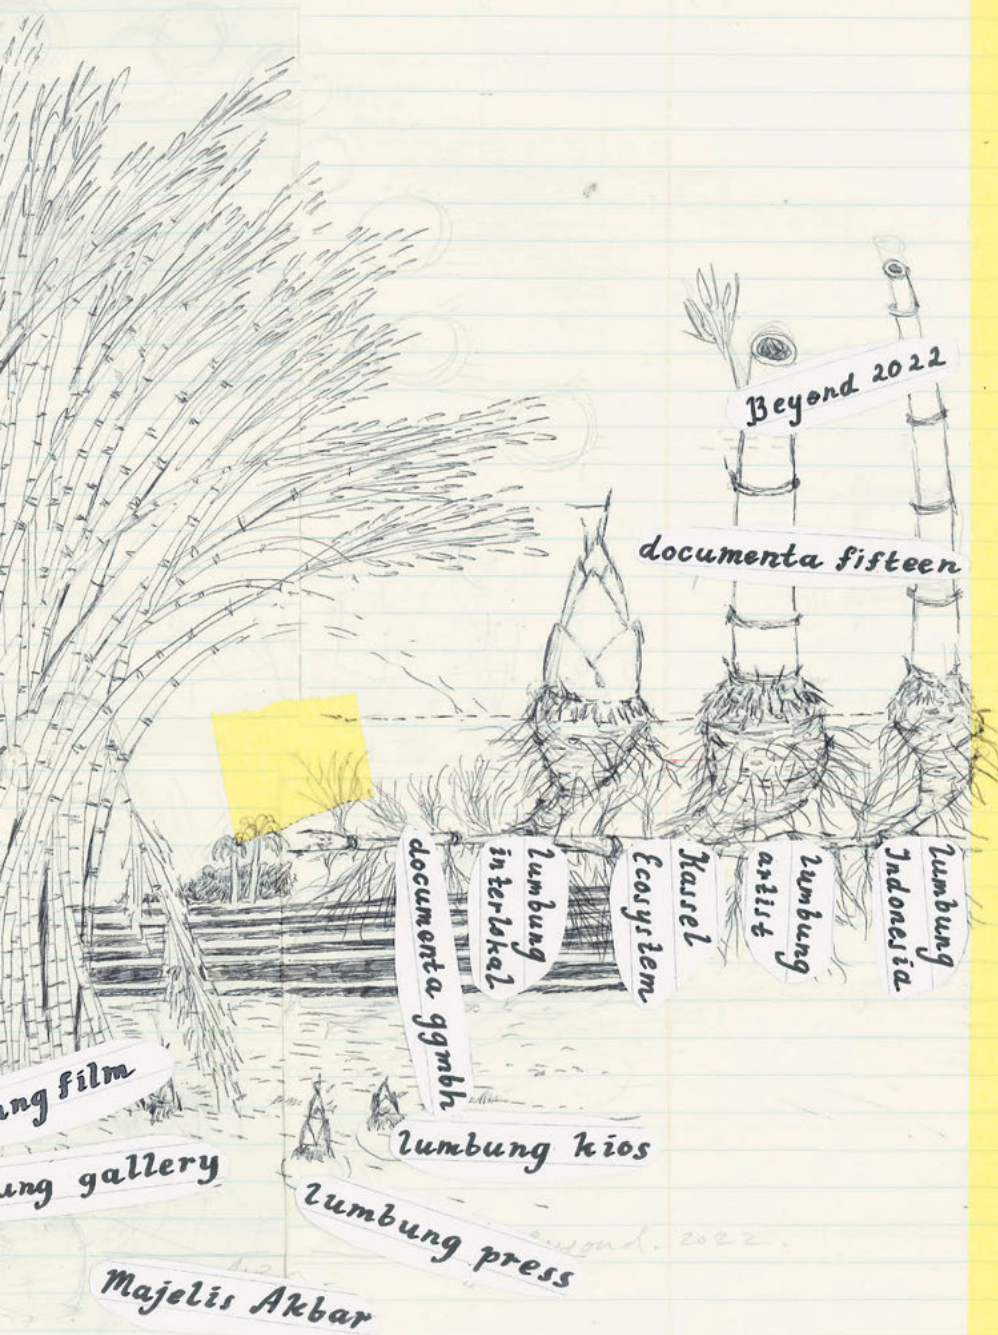 Beyond 2022
documenta fifteen
documenta ggmbh
lumbung
interlokal
Kassel
Ecosystem
lumbung
artist
lumbung
Indonesia
ung film
ung gallery
lumbung kios
lumbung press
Beyond. 2022.
Majelis Akbar